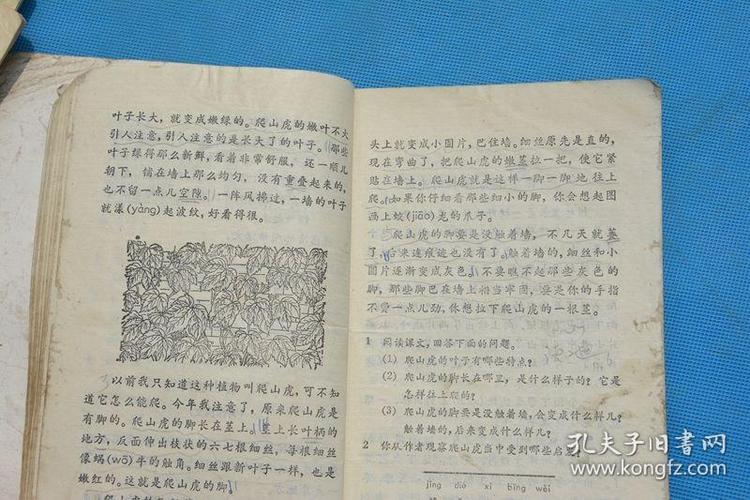 叶子长大，就变成嫩绿的。爬山虎的嫩叶不大
引人注意，引人注意的是长大了的叶子。那些
叶子绿得那么新鲜，看着非常舒服，还一顺儿
朝下，铺在墙上那么均匀，没有重叠起来的，
也不留一点儿空隙。一阵风拂过，一墙的叶子
就漾(yàng)起波纹，好看得很。
以前我只知道这种植物叫爬山虎，可不知
道它怎么能爬。今年我注意了，原来爬山虎是
有脚的。爬山虎的脚长在茎上。茎上长叶柄的
地方，反面伸出枝状的六七根细丝，每根细丝
像蜗(wō)牛的触角。细丝跟新叶子一样，也是
嫩红的。这就是爬山虎的脚。
头上就变成小圆片，巴住墙。细丝原先是直的，
现在弯曲了，把爬山虎的嫩茎拉一把，使它紧
贴在墙上。爬山虎就是这样一脚一脚地往上
爬。如果你仔细看那些细小的脚，你会想起图
画上蛟(jiāo)龙的爪子。
爬山虎的脚要是没触着墙，不几天就萎
了，后来连痕迹也没有了。触着墙的，细丝和小
圆片逐渐变成灰色。不要瞧不起那些灰色的
脚，那些脚巴在墙上相当牢固，要是你的手指
不费一点儿劲，休想拉下爬山虎的一根茎。
1 阅读课文，回答下面的问题。
(1) 爬山虎的叶子有哪些特点？
(2) 爬山虎的脚长在哪里，是什么样子的？它是
怎样往上爬的？
(3) 爬山虎的脚要是没触着墙，会变成什么样儿？
触着墙的，后来变成什么样儿？
2 你从作者观察爬山虎当中受到哪些启发？
jīng dié xì bǐng wěi
孔夫子旧书网
www.kongfz.com